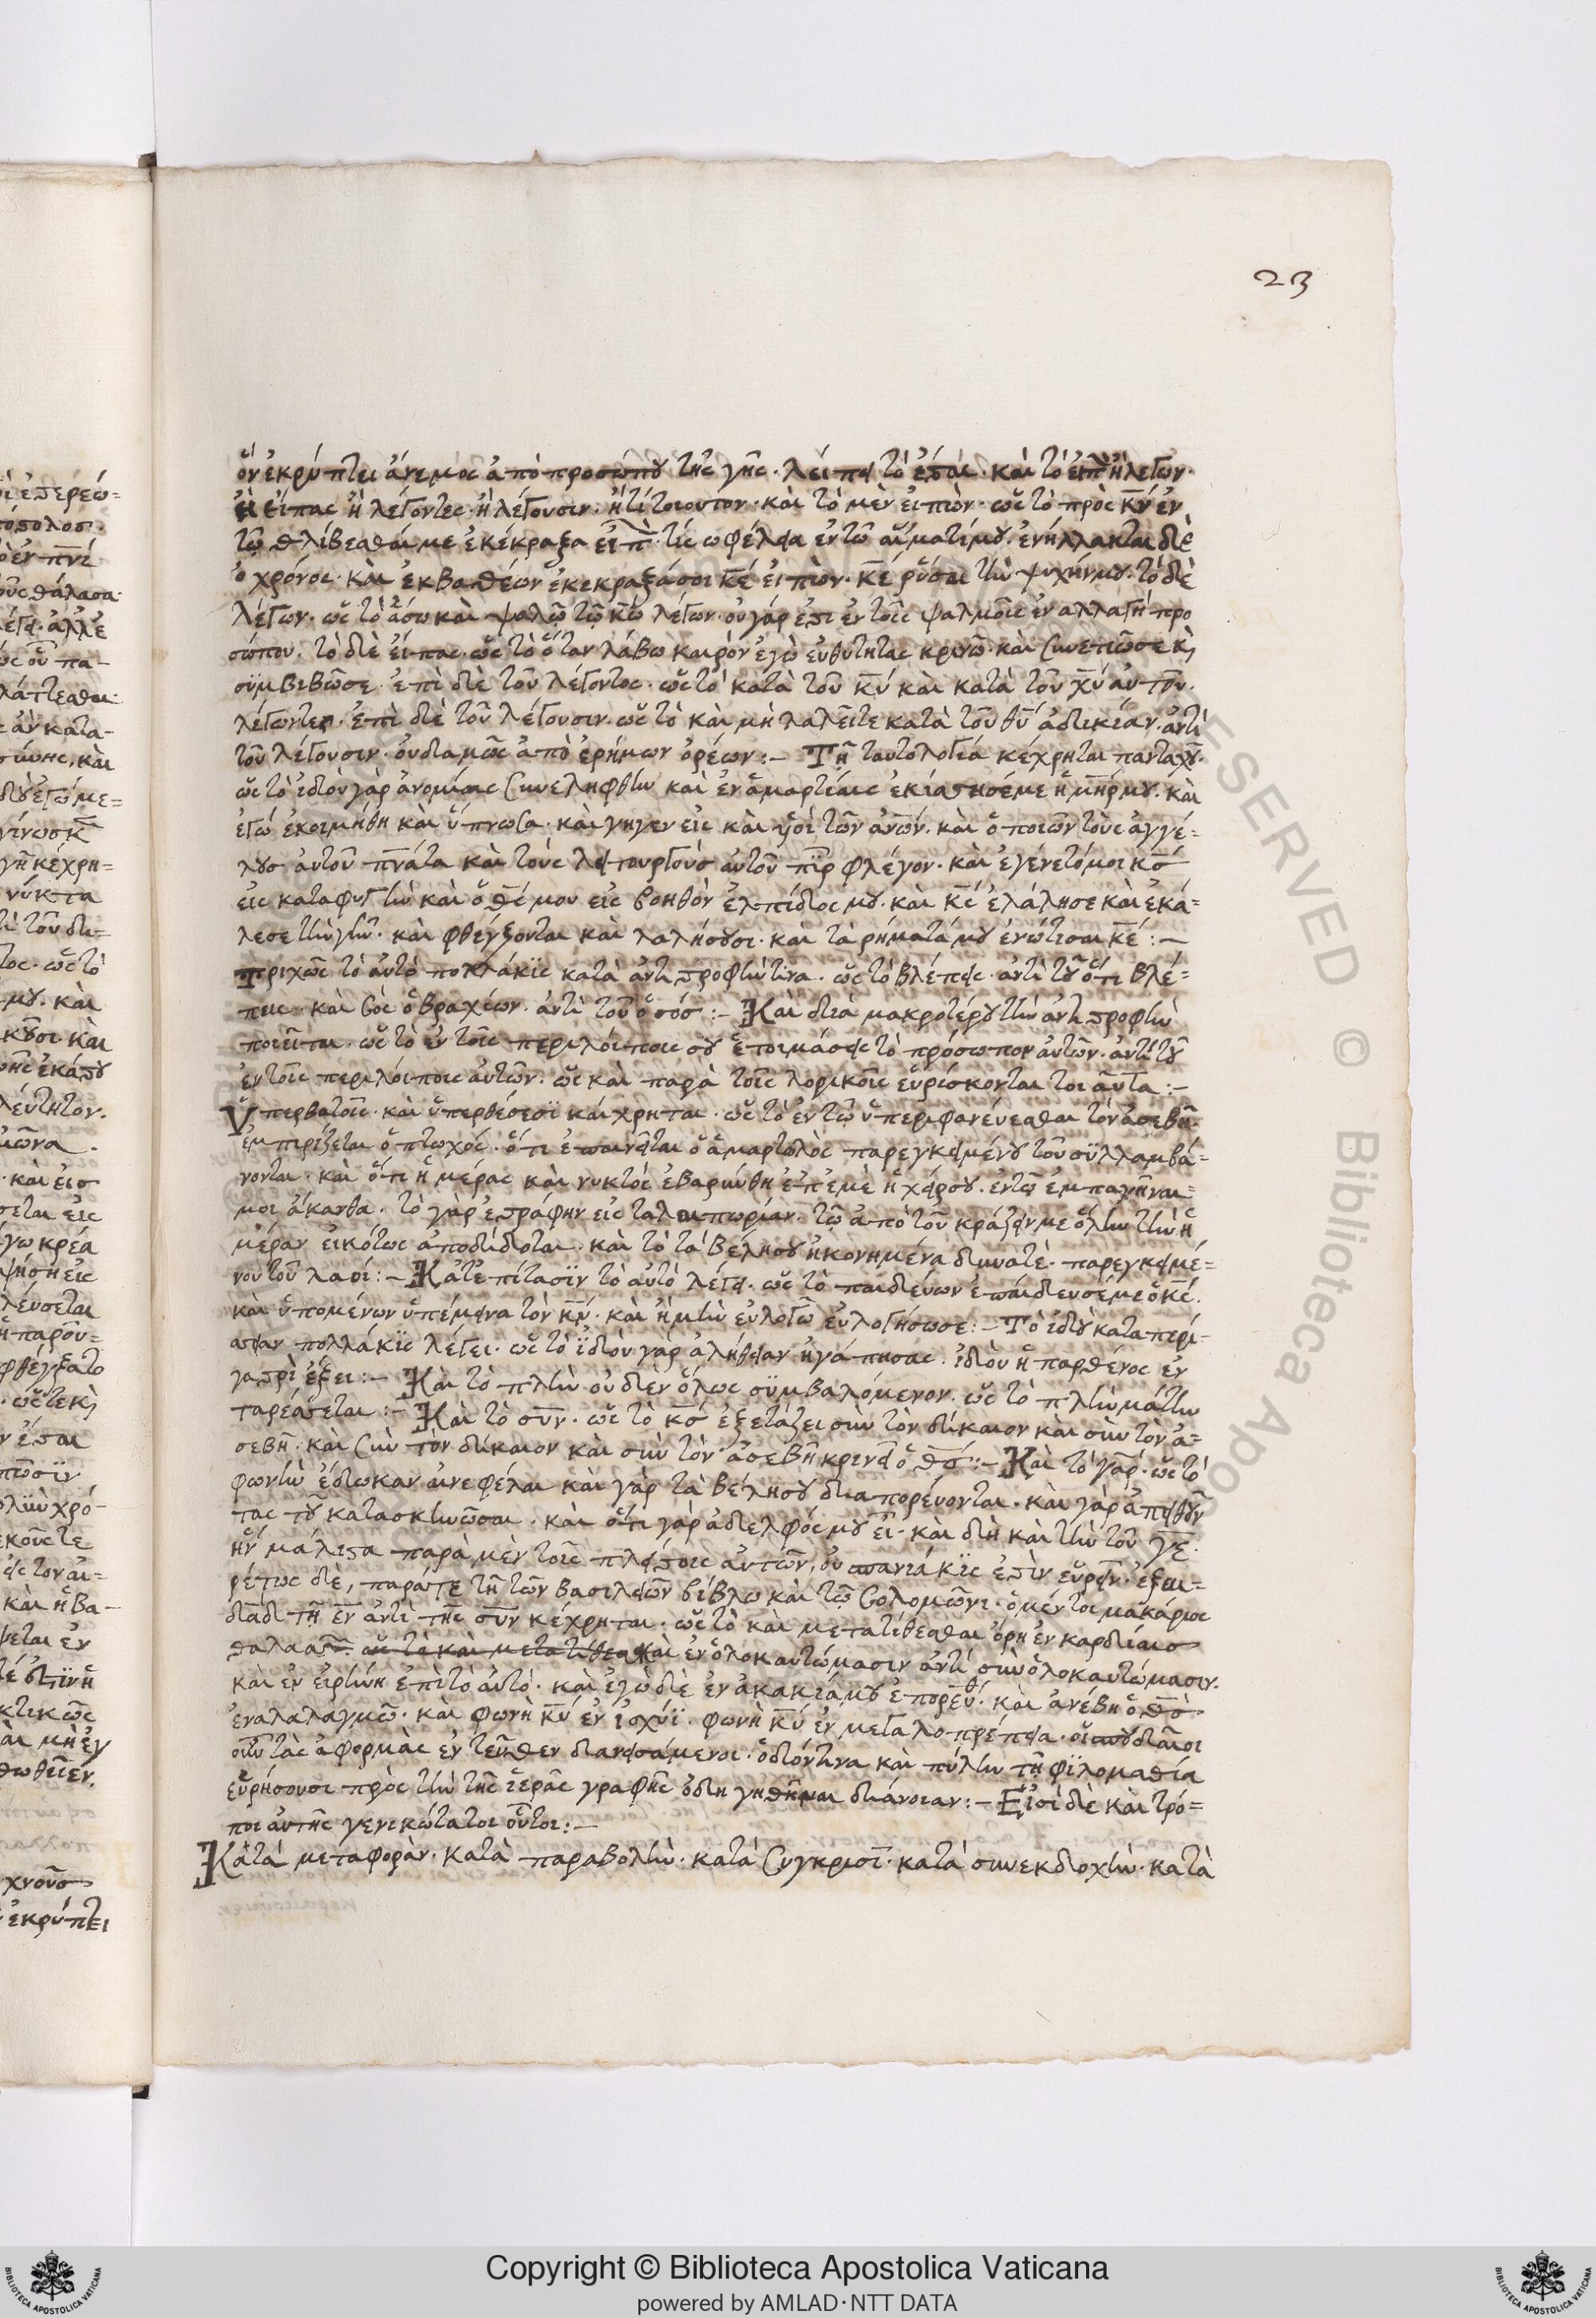 23
ὅν ἐκρύπτει ἄνεμος ἀπὸ προσώπου τῆς γῆς. λείπει τὸ ἔσται. καὶ τὸ εἰπὼν ἢ λέγων.
ἢ εἴπας ἢ λέγοντες. ἢ λέγουσιν. ἤ τι τοιοῦτον. καὶ τὸ μὲν εἰπὼν. ὡς τὸ πρὸς κν ἐν
τῷ θλίβεσθαί με ἐκέκραξα. τίς ὠφέλεια ἐν τῷ αἵματί μου. ἐνήλλακται δὲ
ὁ χρόνος. καὶ ἐκ βαθέων ἐκέκραξά σοι κε εἰπὼν. κε ῥῦσαι τὴν ψυχήν μου. τὸ δὲ
λέγων. ὡς τὸ ᾄσω καὶ ψαλῶ τῷ κω λέγων. οὐ γάρ ἐστι ἐν τοῖς ψαλμοῖς ἐναλλαγὴ προ
σώπου. τὸ δὲ εἴπας. ὡς τὸ ὅταν λάβω καιρὸν ἐγὼ εὐθύτητας κρινῶ. καὶ συνετιῶ σε καὶ
συμβιβῶ σε. ἐπὶ δὲ τοῦ λέγοντος. ὡς τὸ κατὰ τοῦ κυ καὶ κατὰ τοῦ χυ αὐτοῦ.
λέγωντες. ἐπὶ δὲ τοῦ λέγουσιν. ὡς τὸ καὶ μὴ λαλεῖτε κατὰ τοῦ θυ ἀδικίαν. ἀντὶ
τοῦ λέγουσιν. οὐδαμῶς ἀπὸ ἐρήμων ὀρέων :– Τῇ ταυτολογία κέχρηται πανταχοῦ.
ὡς τὸ ἰδοὺ γὰρ ἀνομίαις συνελήφθην καὶ ἐν ἁμαρτίαις ἐκίσσησέ με ἡ μηρ μου. καὶ
ἐγώ ἐκοιμήθη καὶ ὕπνωσα. καὶ γηγενεῖς καὶ ὑοὶ τῶν ανων. καὶ ὁ ποιῶν τοὺς ἀγγέ=
λους αὐτοῦ πνατα καὶ τοὺς λειτουργοὺς αὐτοῦ πῦρ φλέγον. καὶ ἐγένετό μοι κς
εἰς καταφυγὴν καὶ ὁ θς μου εἰς βοηθὸν ἐλπίδος μου. καὶ κς ἐλάλησε καὶ ἐκά=
λεσε τὴν γῆν. καὶ φθέγξονται καὶ λαλήσουσι. καὶ τὰ ρήματά μου ἐνώτισαι κε :–
τὸ αὐτὸ πολλάκις κατὰ ἀντιστροφήν τινα. ὡς τὸ βλέπεις. ἀντὶ τοῦ ὅτι βλέ=
πεις. καὶ σὸς ὁ βραχίων. ἀντὶ τοῦ ὁ σός :– Καὶ διὰ μακροτέρου τὴν ἀντιστροφὴν
ποιεῖται. ὡς τὸ ἐν τοῖς περιλοίποις σου ἑτοιμάσεις τὸ πρόσωπον αὐτῶν. ἀντὶ τοῦ
ἐν τοῖς περιλοίποις αὐτῶν. ὡς καὶ παρὰ τοῖς λυρικοῖς εὑρίσκονται τοιαῦτα :–
Ὑπερβατοῖς. καὶ ὑπερθέσεσι κέχρηται. ὡς τὸ ἐν τῷ ὑπεριφανεύεσθαι τὸν ἀσεβῆ.
ἐμπιρίζεται ὁ πτωχός. ὅτι ἐπαινεῖται ὁ ἁμαρτωλὸς παρεγκειμένου τοῦ συλλαμβά=
νονται. καὶ ὅτι ἡμέρας καὶ νυκτὸς ἐβαρύνθη ἐπ' ἐμὲ ἡ χείρ σου. ἐν τῷ ἐμπαγῆναι=
μοι ἄκανθα. τὸ γὰρ ἐστράφην εἰς ταλαιπωρίαν. τῷ ἀπὸ τοῦ κράζειν με ὅλην τὴν ἡ
μέραν εἰκότως ἀποδίδοται. καὶ τὸ τὰ βέλη σου ἠκονημένα δυνατὲ. παρεγκειμέ=
νου τοῦ λαοί :– Κατ' ἐπίτασιν τὸ αὐτὸ λέγει. ὡς τὸ παιδεύων ἐπαίδευσέ με ὁ κς.
καὶ ὑπομένων ὑπέμεινα τὸν κν. καὶ ἠμὴν εὐλογῶ εὐλογήσω σε :– Τὸ ἰδοὺ κατὰ περί-
πολλάκις λέγει. ὡς τὸ ἰδοὺ γὰρ ἀλήθειαν ἠγάπησας. ἰδοὺ ἡ παρθένος ἐν
γαστρὶ ἕξει :– Καὶ τὸ πλὴν οὐδὲν ὅλως συμβαλόμενον. ὡς τὸ πλὴν μάτην
ταράσεται :– Καὶ τὸ σὺν. ὡς τὸ κς ἐξετάζει σὺν τὸν δίκαιον καὶ σὺν τὸν ἀ=
σεβῆ. καὶ σὺν τὸν δίκαιον καὶ σὺν τὸν ἀσεβῆ κρινεῖ ὁ θς :– Καὶ τὸ γάρ. ὡς τὸ
φωνὴν ἔδωκαν αἱ νεφέλαι καὶ γὰρ τὰ βέλη σου διαπορεύονται. καὶ γὰρ ἀπειθοῦν
τας τοῦ κατασκηνῶσαι. καὶ ὅτι γὰρ ἀδελφός μου εἶ. καὶ δὴ καὶ τὴν τοῦ γε.
ἣν μάλιστα παρὰ μὲν τοῖς πλείστοις αὐτῶν, οὐ σπανιάκις ἐστὶν εὑρεῖν. ἐξαι=
ρέτως δὲ, παρά τε τῇ τῶν βασιλειῶν βίβλω καὶ τῷ σολομῶνι. ὁ μέντοι μακάριος
δαδ τῇ ἐν ἀντὶ τῆς σὺν κέχρηται. ὡς τὸ καὶ μετατίθεσθαι ὄρη ἐν καρδίαις
θαλασσῶν. ὡς τὸ καὶ μετατίθεσθαι καὶ ἐν ὁλοκαυτώμασιν ἀντὶ σὺν ὁλοκαυτώμασιν.
καὶ ἐν εἰρήνη ἐπὶ τὸ αὐτό. καὶ ἐγὼ δὲ ἐν ἀκακία μου ἐπορεύθ. καὶ ἀνέβη ὁ θς
ἐν ἀλαλαγμῷ. καὶ φωνὴ κυ ἐν ἰσχύι. φωνὴ κυ ἐν μεγαλοπρέπεια. οἱ σπουδαῖοι
οὖν τὰς ἀφορμὰς ἐντεῦθεν δανεισάμενοι. ὁδόν τινα καὶ πύλην τῇ φιλομαθία
εὑρήσουσι πρὸς τὴν τῆς ἱερᾶς γραφῆς ὁδηγηθῆναι διάνοιαν :– Εἰσὶ δὲ καὶ τρό=
ποι αὐτῆς γενικώτατοι οὗτοι :–
Κατὰ μεταφορὰν. κατὰ παραβολὴν. κατὰ σύγκρισι. κατὰ συνεκδοχὴν. κατὰ
Copyright © Biblioteca Apostolica Vaticana
powered by AMLAD·NTT DATA